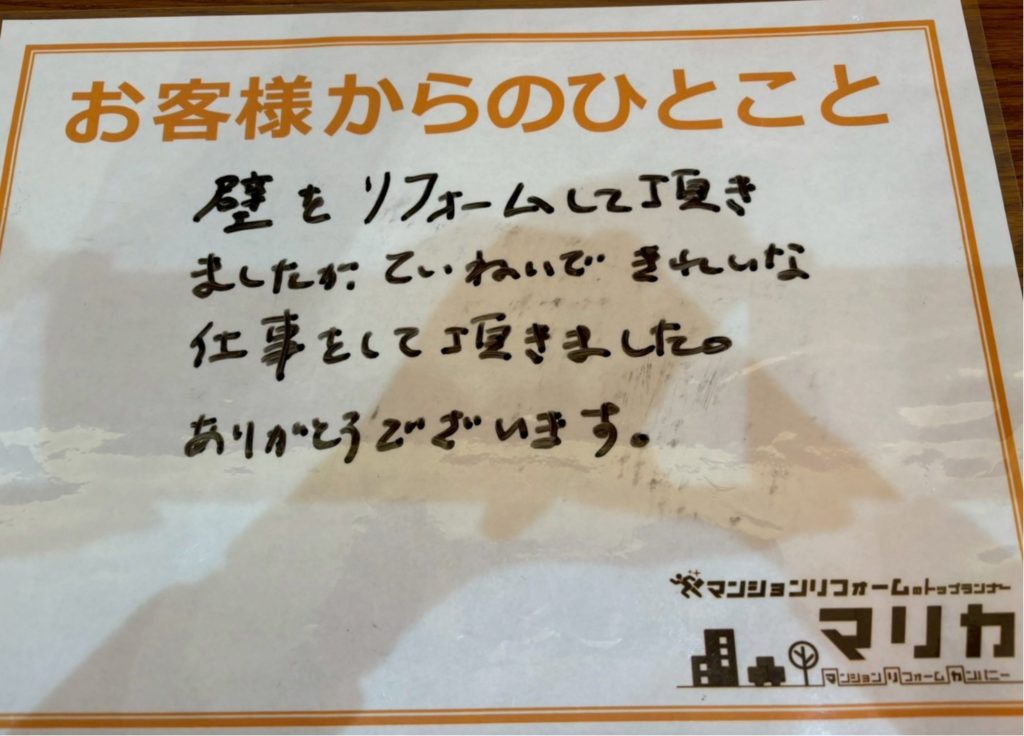 お客様からのひとこと
壁をリフォームして頂き
ましたが、ていねいで きれいな
仕事をして頂きました。
ありがとうございます。
マンションリフォームのトップランナー
マリカ
マンションリフォームカンパニー